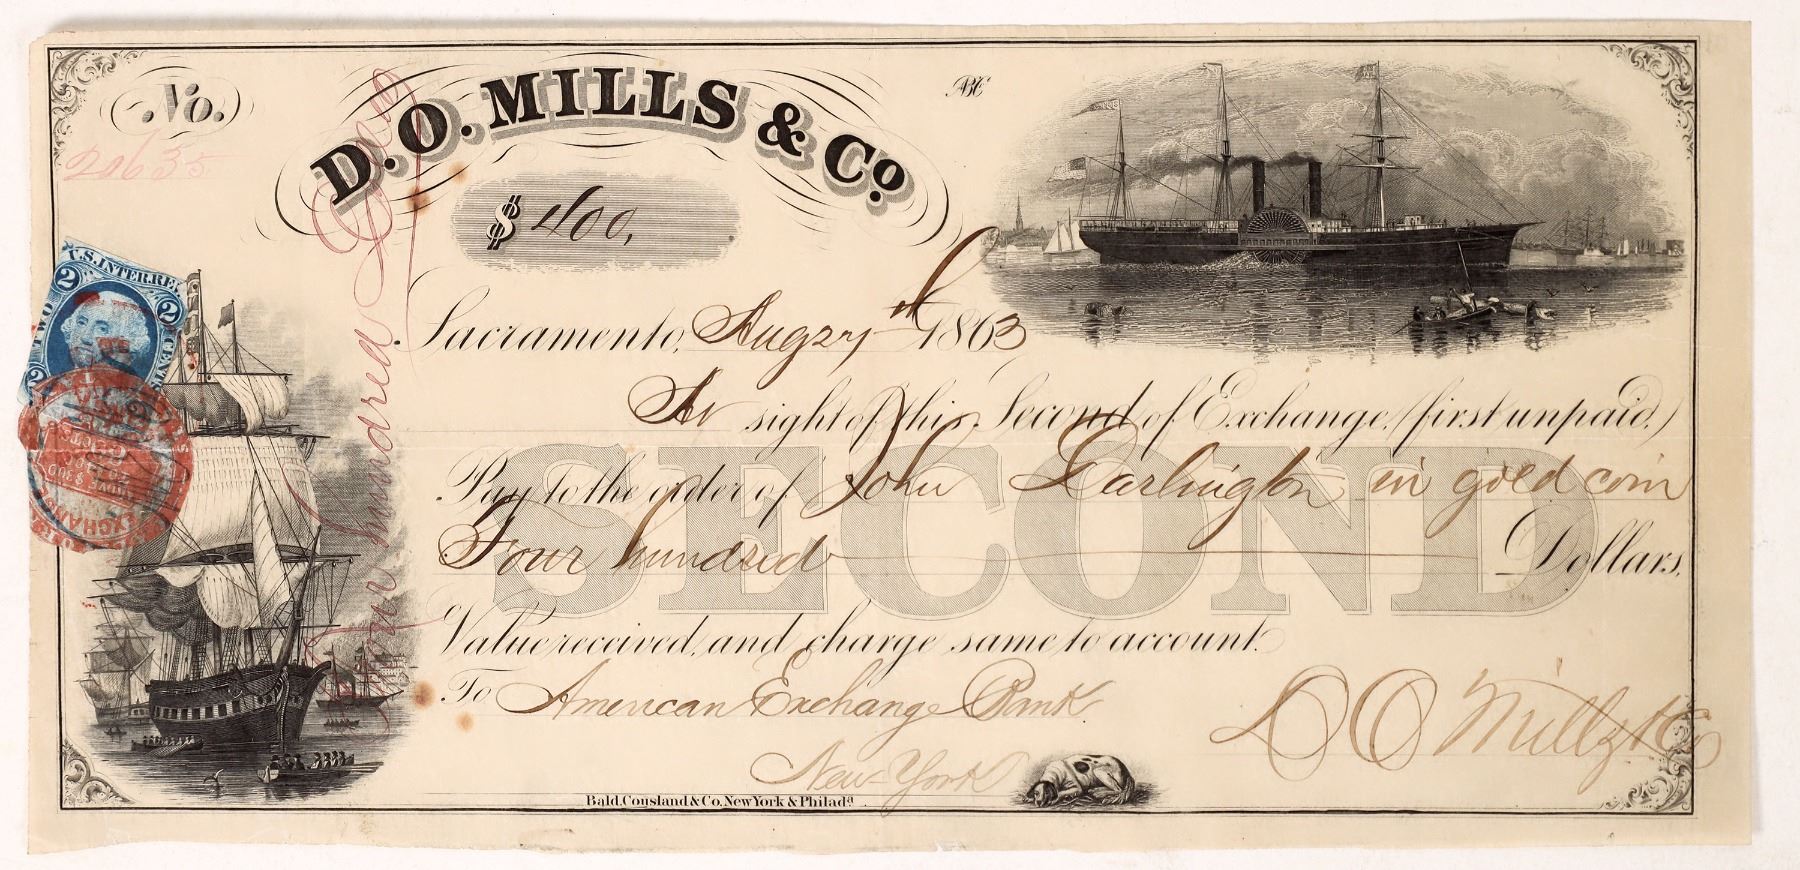 No.
20635
D. O. MILLS & Co.
$ 400,
Sacramento, Aug 27th 1863
At sight of this Second of Exchange (first unpaid)
Pay to the order of John Darlington in gold coin
SECOND
Four hundred Dollars,
Value received, and charge same to account.
To American Exchange Bank
New-York
D O Mills & Co
Bald, Cousland & Co. New York & Philada.
Four hundred
U.S. INTER. REV.
2 2
TWO CENTS
2
EXCHANGE